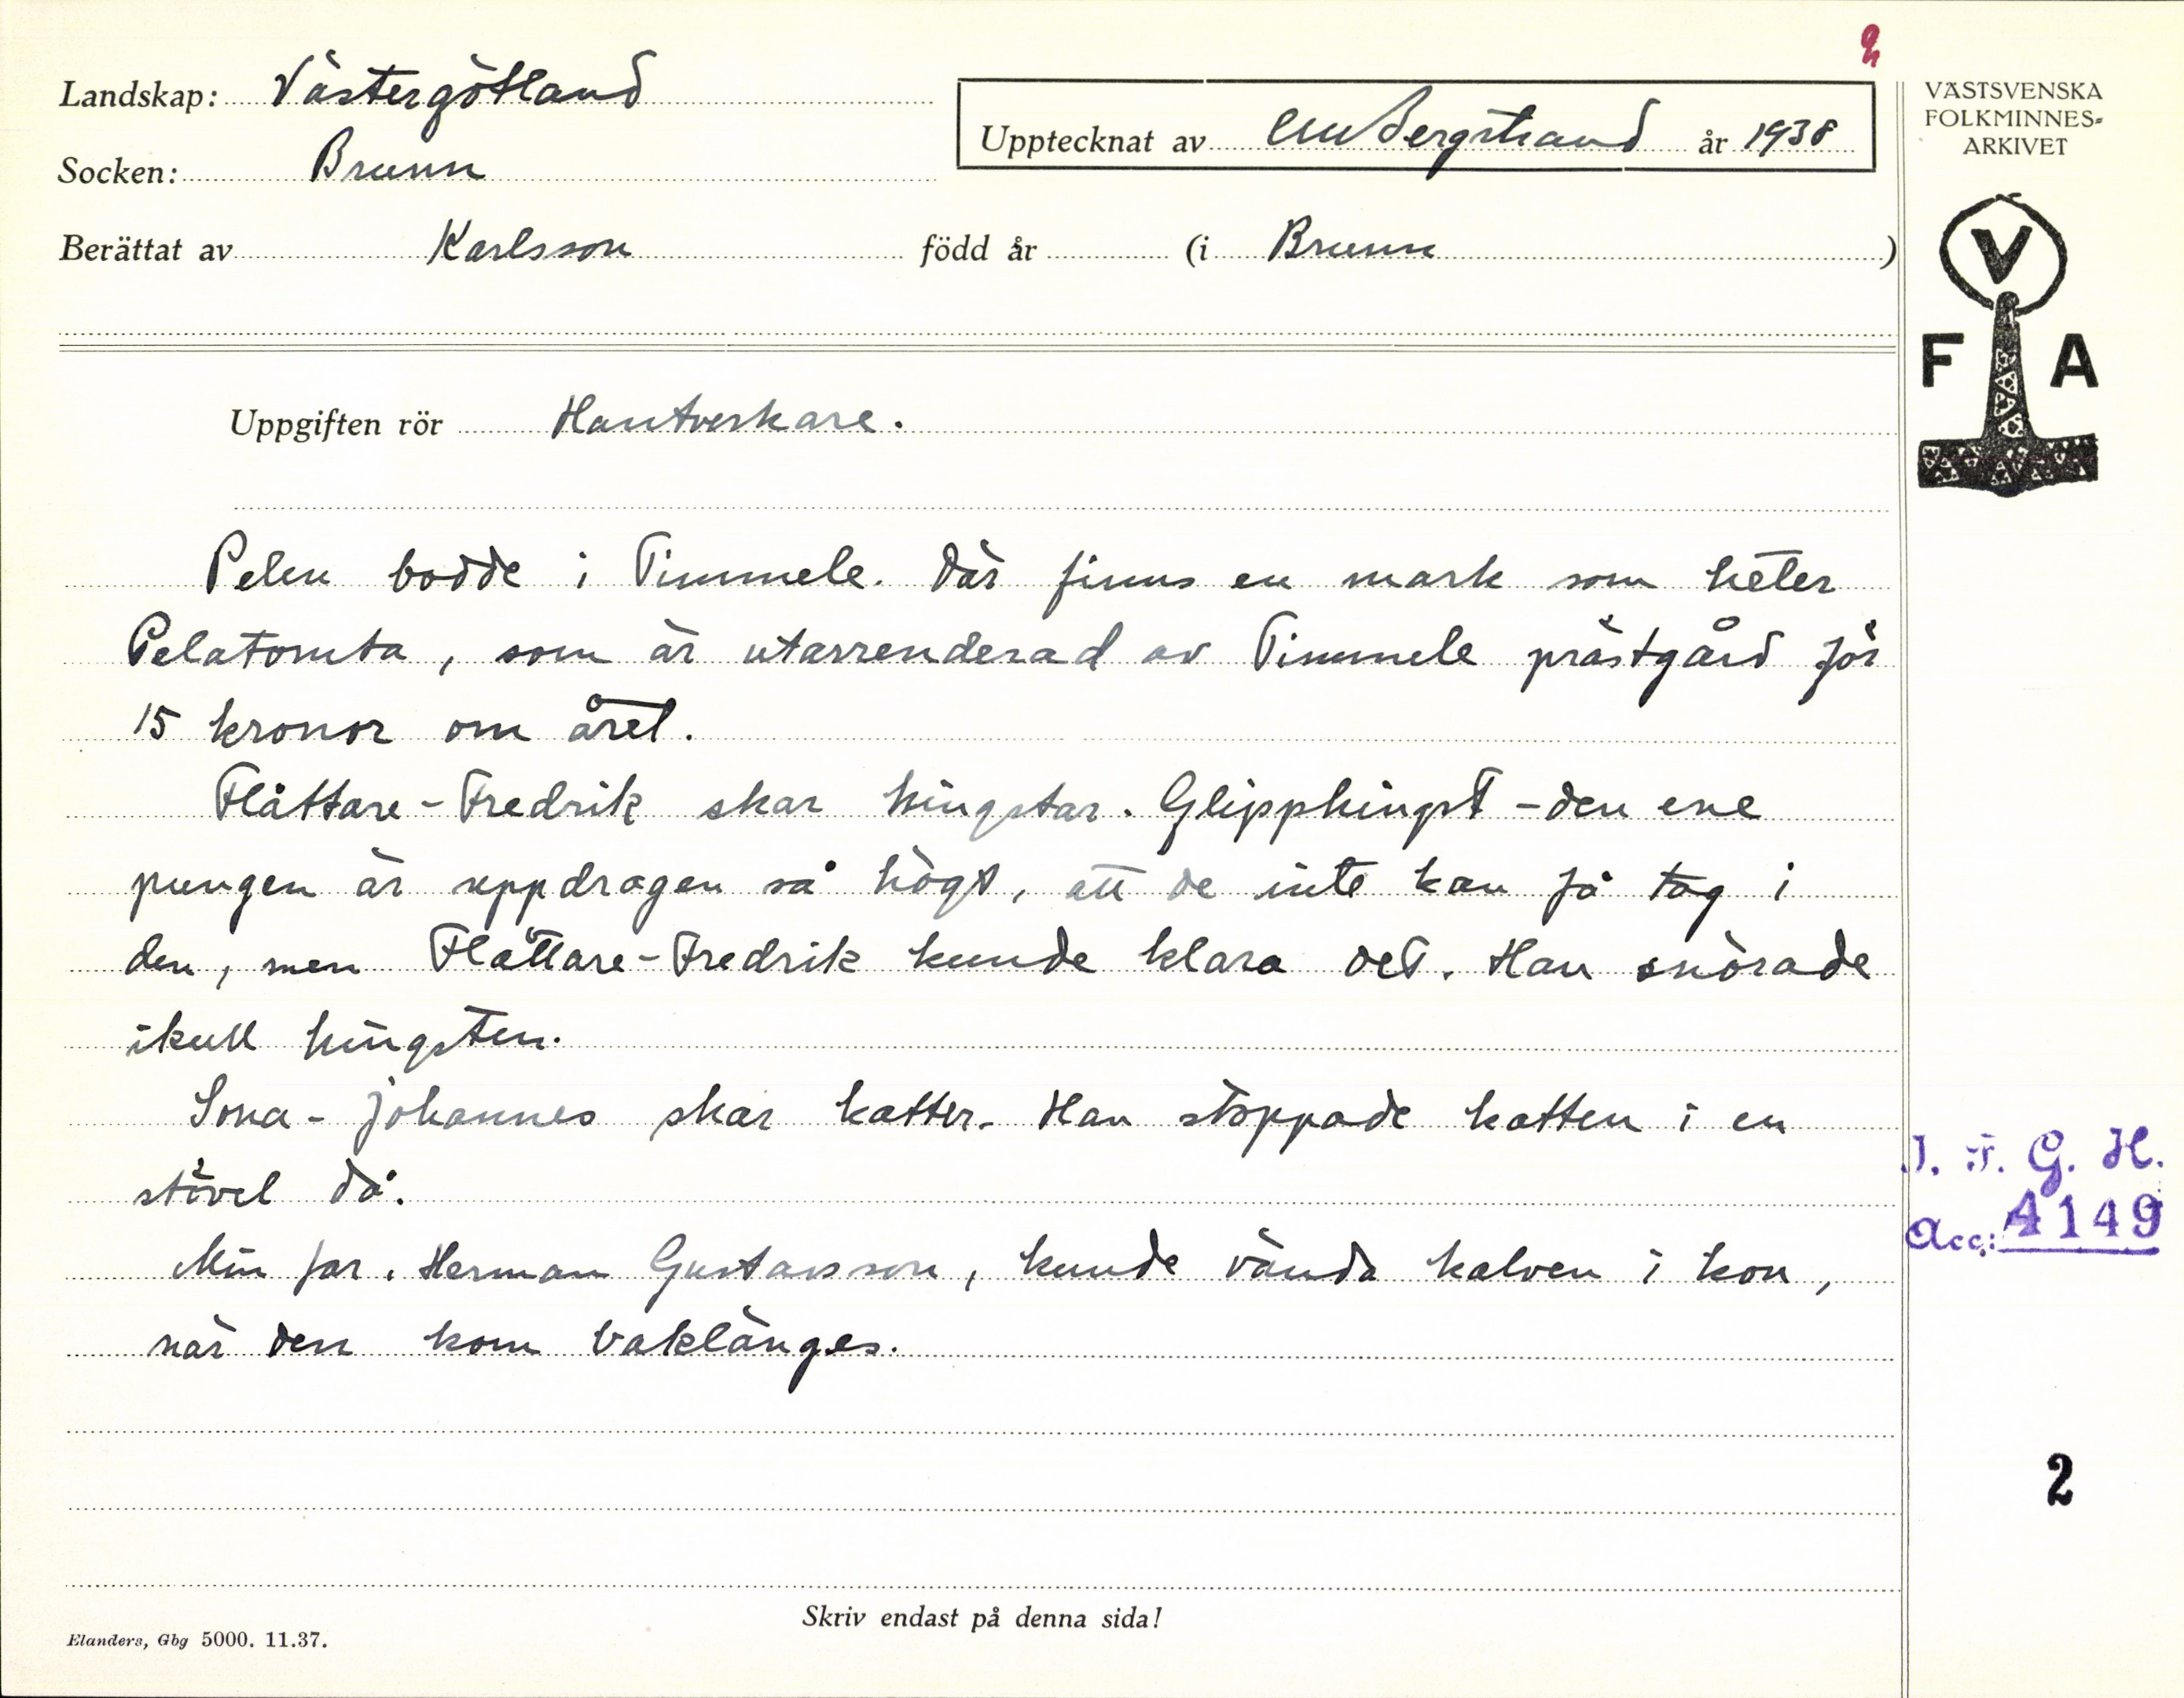 2
Landskap: Västergötland
Upptecknat av CM Bergstrand år 1938
Socken: Brunn
Berättat av Karlsson född år (i Brunn )
VÄSTSVENSKA
FOLKMINNES-
ARKIVET
V
F A
Uppgiften rör Hantverkare.
Pelen bodde i Timmele. Där finns en mark som heter
Pelatomta, som är utarrenderad av Timmele prästgård för
15 kronor om året.
Flåttare-Fredrik skar hingstar. Glipphingst - den ene
pungen är uppdragen så högt, att de inte kan få tag i
den, men Flåttare-Fredrik kunde klara det. Han snörade
ikull hingsten.
Sona-Johannes skar katter. Han stoppade katten i en
stövel då.
Min far, Herman Gustavsson, kunde vända kalven i kon,
när den kom baklänges.
I. F. G. H.
Acc: 4149
2
Skriv endast på denna sida!
Elanders, Gbg 5000. 11.37.